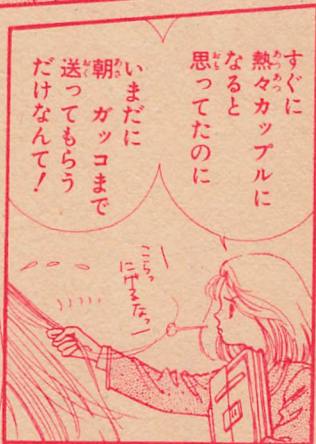 すぐに
熱々カップルに
なると
思ってたのに
いまだに
朝 ガッコまで
送ってもらう
だけなんて!
こらっ
にげるなっ